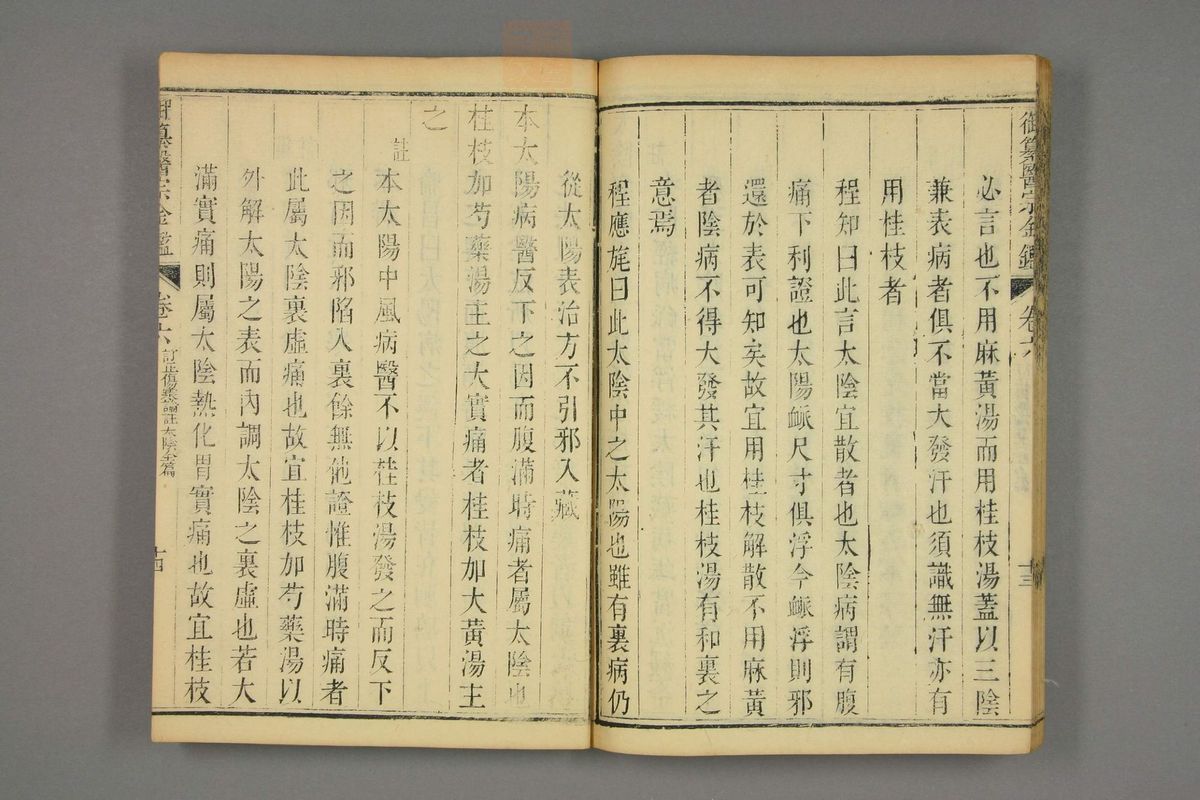 御纂醫宗金鑑 卷六 十三
必言也不用麻黃湯而用桂枝湯蓋以三陰
兼表病者俱不當大發汗也須識無汗亦有
用桂枝者
程知曰此言太陰宜散者也太陰病謂有腹
痛下利證也太陽脈尺寸俱浮今脈浮則邪
還於表可知矣故宜用桂枝解散不用麻黃
者陰病不得大發其汗也桂枝湯有和裏之
意焉
程應旄曰此太陰中之太陽也雖有裏病仍
從太陽表治方不引邪入藏
本太陽病醫反下之因而腹滿時痛者屬太陰也
桂枝加芍藥湯主之大實痛者桂枝加大黃湯主
之
註本太陽中風病醫不以桂枝湯發之而反下
之因而邪陷入裏餘無他證惟腹滿時痛者
此屬太陰裏虛痛也故宜桂枝加芍藥湯以
外解太陽之表而內調太陰之裏虛也若大
滿實痛則屬太陰熱化胃實痛也故宜桂枝
御纂醫宗金鑑 卷六 訂正傷寒論註太陰全篇 十四